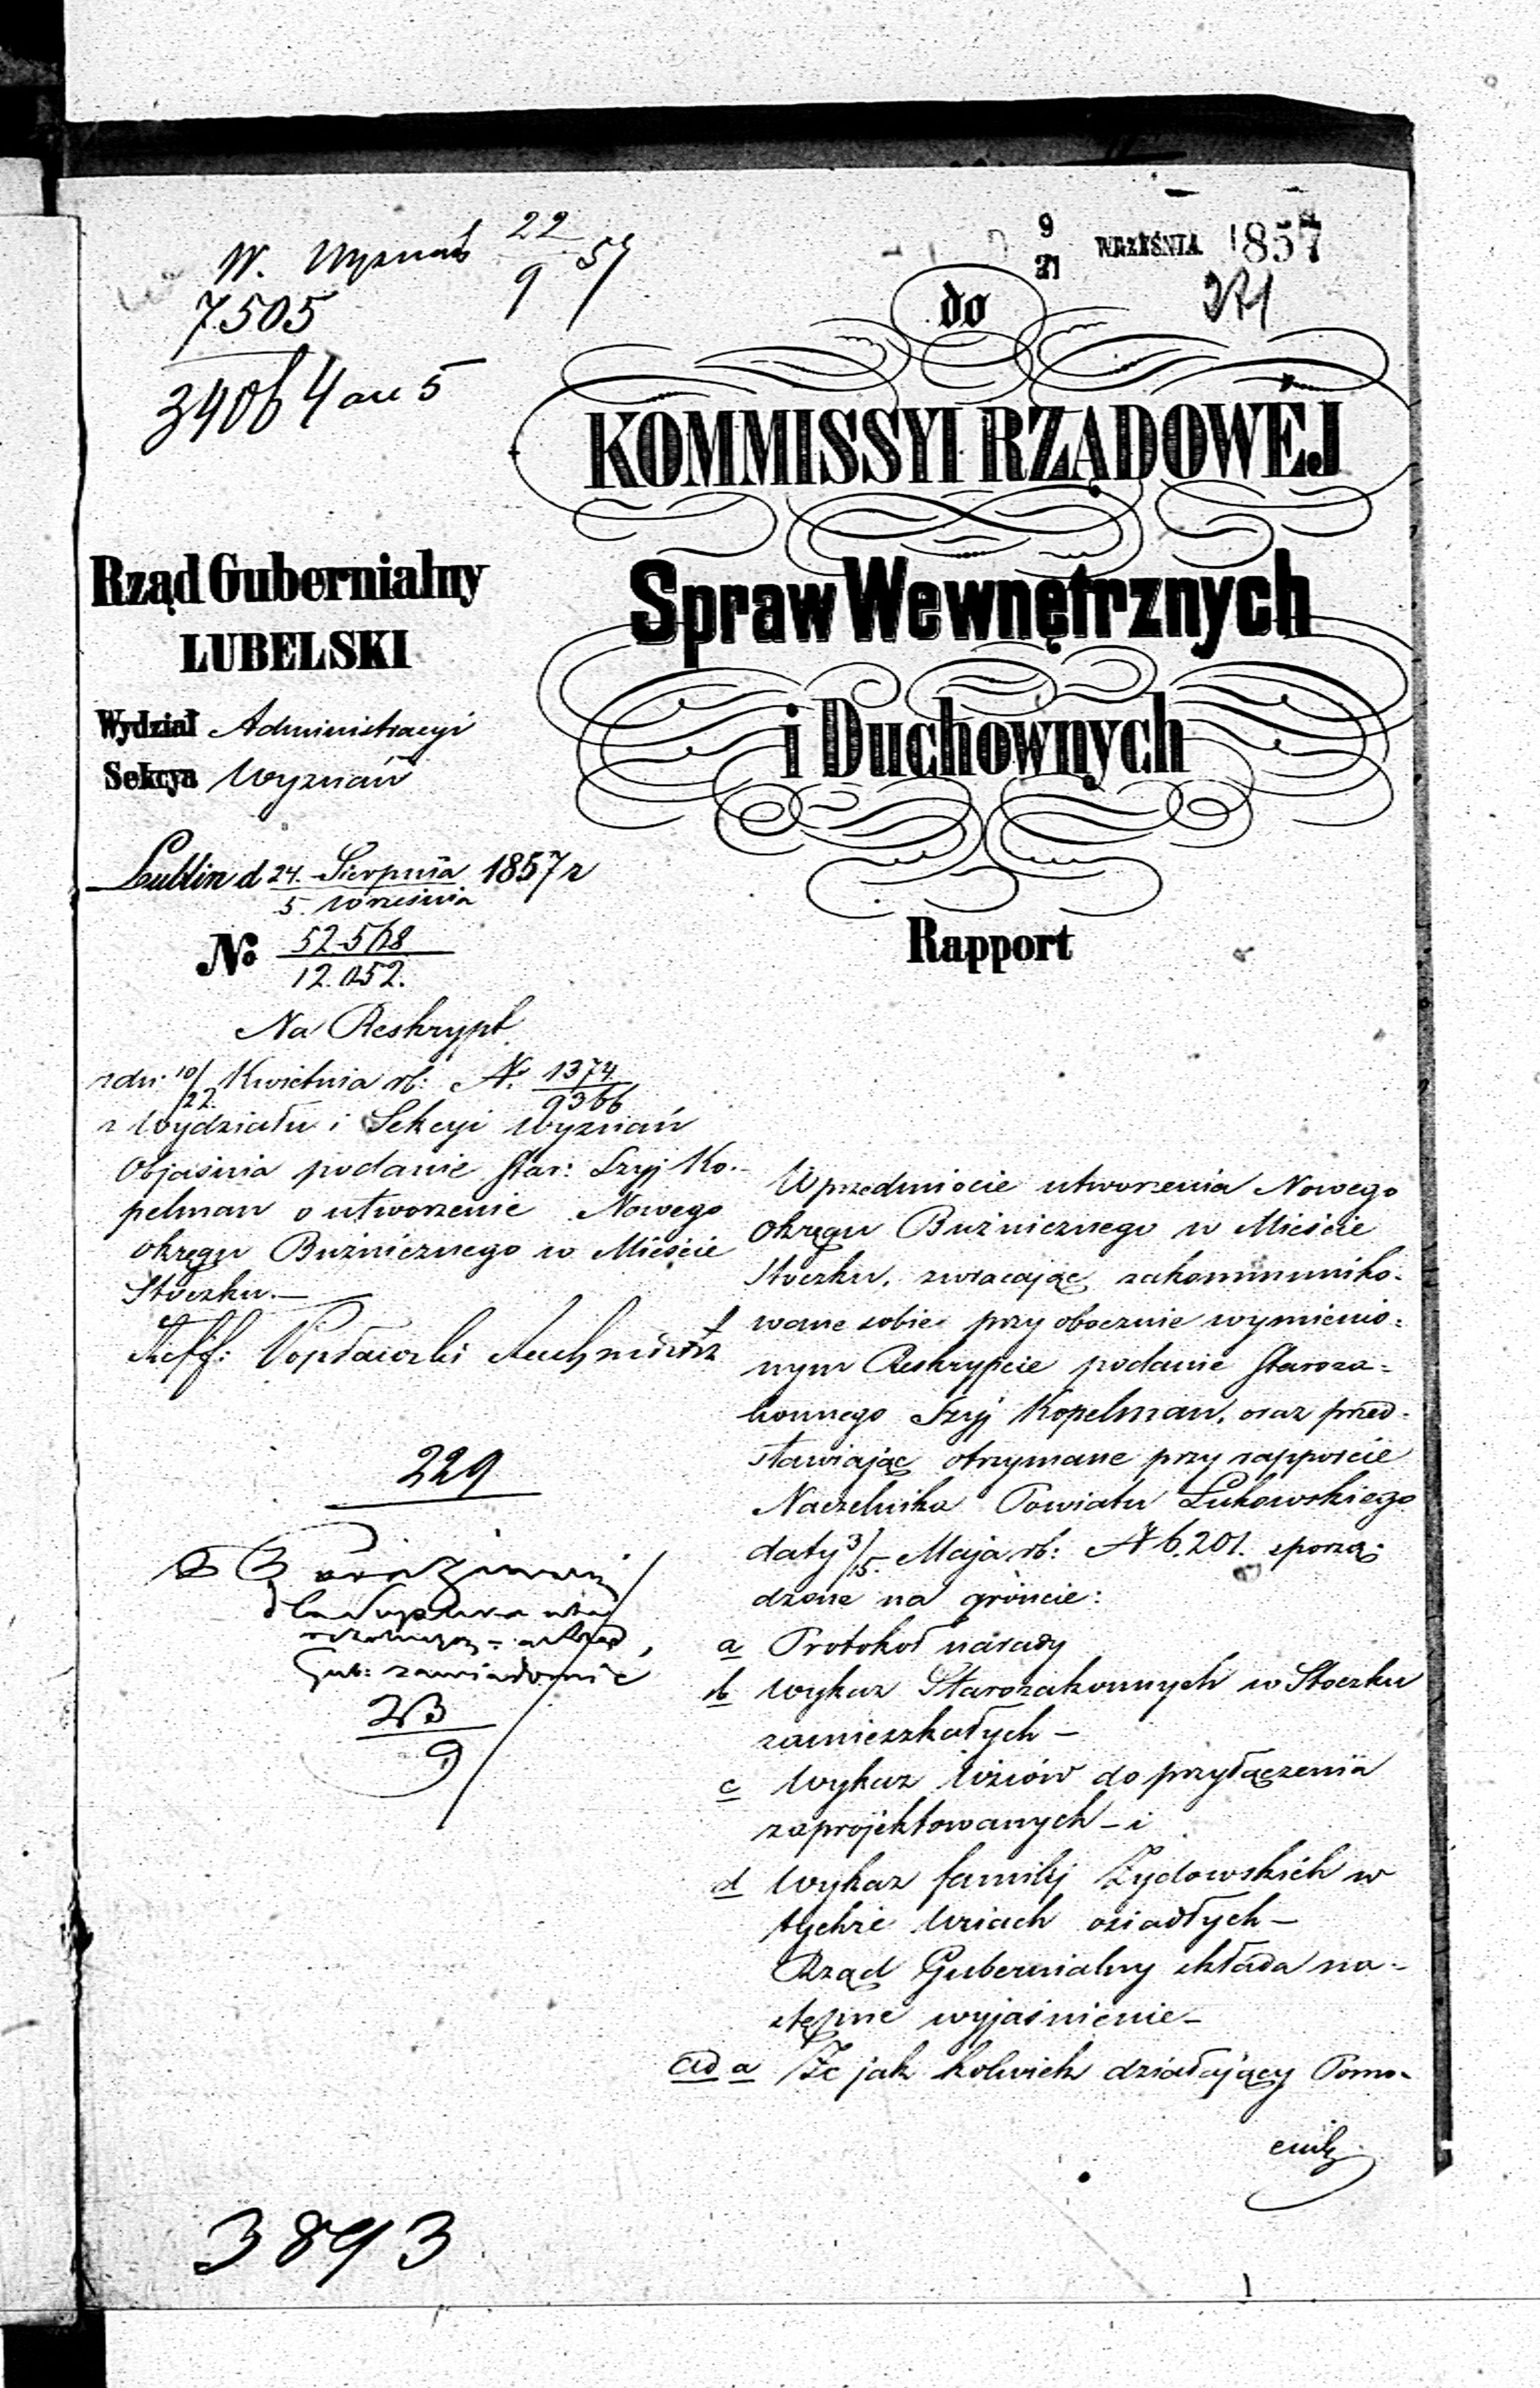 W. Wyznań 22/9 57
7505
3406 4 au 5
9/21 WRZEŚNIA 1857
271
do
KOMMISSYI RZĄDOWÉJ
Spraw Wewnętrznych
i Duchownych
Rapport
Rząd Gubernialny
LUBELSKI
Wydział Administracyi
Sekcya Wyznań
Lublin d 24. Sierpnia / 5. Września 1857 r
No 52.568 / 12.052.
Na Reskrypt
z dn: 10/22. Kwietnia rb: N. 1374 / 9366
z Wydziału i Sekcyi Wyznań
Objaśnia podanie Star: Szyj Ko-
pelman o utworzenie Nowego
Okręgu Bużnicznego w Mieście
Stoczku.—
Reff:
229
Gub: zawiadomić
23/9
W przedmiocie utworzenia Nowego
Okręgu Bużnicznego w Mieście
Stoczku, zwracając zakommuniko-
wane sobie przy obocznie wymienio-
nym Reskrypcie podanie Staroza-
konnego Szyj Kopelman, oraz przed-
stawiając otrzymane przy rapporcie
Naczelnika Powiatu Łukowskiego
daty 3/15. Maja rb: N 6.201. sporzą-
dzone na gróncie:
a Protokoł narady
b Wykaz Starozakonnych w Stoczku
zamieszkałych —
c Wykaz Wsiów do przyłączenia
zaprojektowanych — i
d Wykaz familij Żydowskich w
tychże Wsiach osiadłych —
Rząd Gubernialny składa na-
stępne wyjaśnienie —
ad a Że jak kolwiek działający Pomo-
cnik
3893